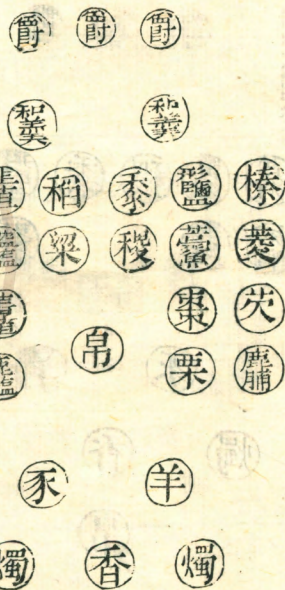 爵 爵 爵
和羹 和羹
榛 形鹽 黍 稻
菱 藁魚 稷 粱
芡 棗
鹿脯 栗 帛
羊 豕
燭 香 燭